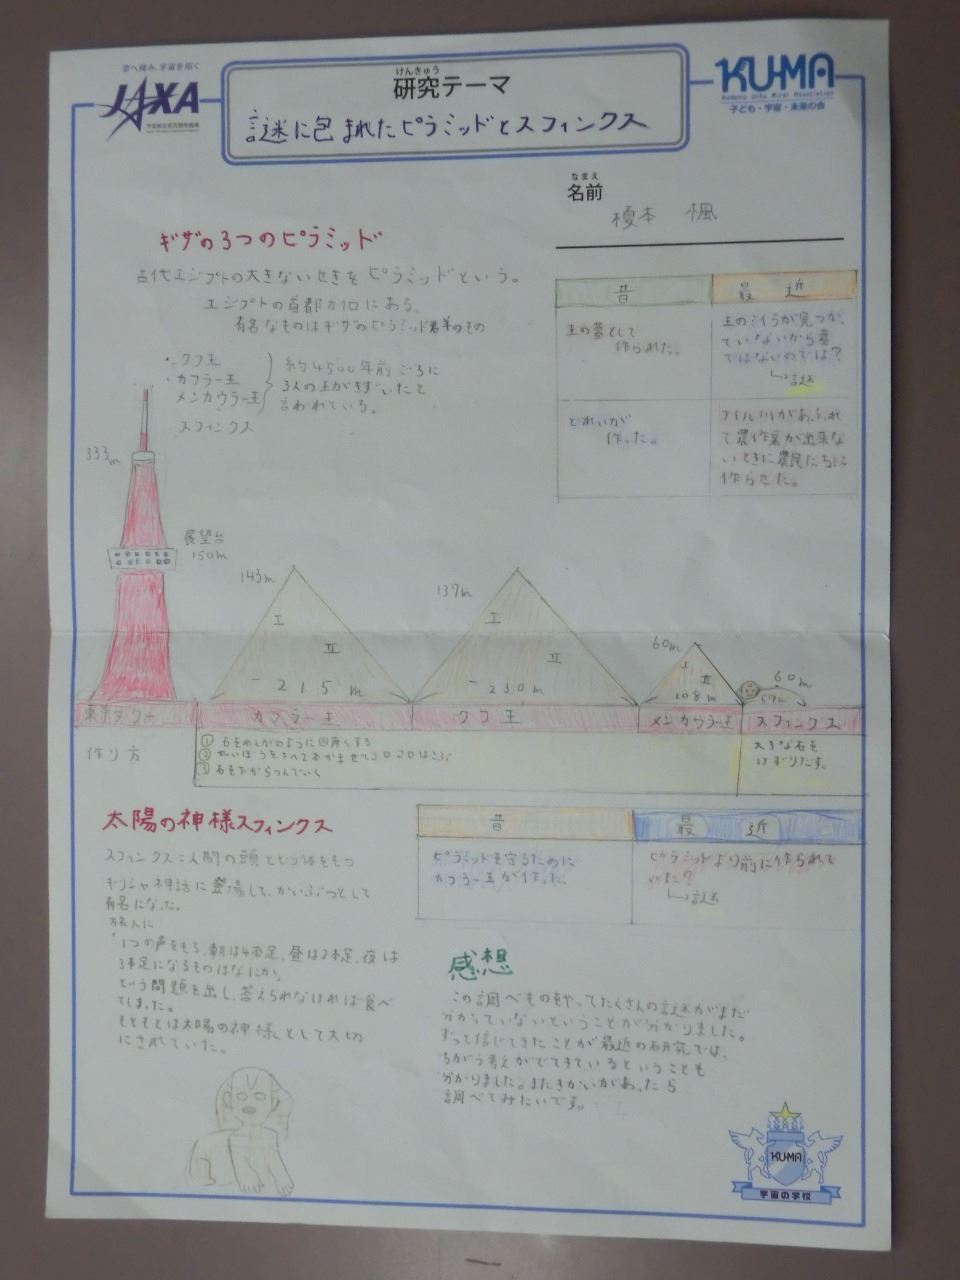 空へ挑み、宇宙を拓く
JAXA
宇宙航空研究開発機構
けんきゅう
研究テーマ
謎に包まれたピラミッドとスフィンクス
KU-MA
Kodomo Uchu Mirai Association
子ども・宇宙・未来の会
なまえ
名前
榎本 楓
ギザの3つのピラミッド
古代エジプトの大きないせきをピラミッドという。
エジプトの首都カイロにある。
有名なものはギザのピラミッド群のもの
・クフ王
・カフラー王
メンカウラー王
約4500年前ごろに
3人の王がきずいたと
言われている。
スフィンクス
昔
最近
王の墓として
作られた。
王のミイラが見つか、
ていないから墓
ではないのでは?
↳謎
どれいが
作った。
ナイル川があふれ
て農作業が出来な
いときに農民たちに
作らせた。
333m
展望台
150m
143m
I
II
215m
137m
I
II
230m
60m
I
II
108m
60m
57m
東京タワー
カフラー王
クフ王
メンカウラー王
スフィンクス
作り方
① 石をれんがのように四角くする
②
③ 石を下からつんでいく
大きな石を
けずりだす。
太陽の神様スフィンクス
スフィンクス:人間の頭とどう体をもつ
ギリシャ神話に登場して、かいぶつとして
有名になった。
旅人に
「1つの声をもち、朝は4本足、昼は2本足、夜は
3本足になるものはなにか」
という問題を出し、答えられなければ食べ
てしまった。
もともとは太陽の神様として大切
にされていた。
昔
最近
ピラミッドを守るために
カフラー王が作った。
ピラミッドより前に作られて
いた?
↳謎
感想
この調べものをやってたくさんの謎がまだ
分かっていないということが分かりました。
ずっと信じてきたことが最近の研究では、
ちがう考えがでてきているということも
分かりました。またきかいがあったら
調べてみたいです。
KU-MA
宇宙の学校